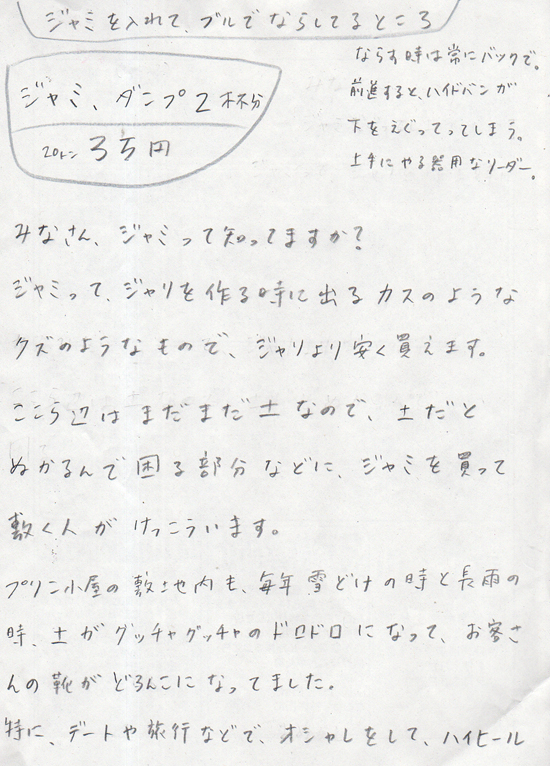 ジャミを入れて、ブルでならしてるところ
ジャミ、ダンプ2杯分
20トン 3万円
ならす時は常にバックで。
前進すると、ハイドバンが
下をえぐってってしまう。
上手にやる器用なリーダー。
みなさん、ジャミって知ってますか?
ジャミって、ジャリを作る時に出るカスのような
クズのようなもので、ジャリより安く買えます。
ここら辺はまだまだ土なので、土だと
ぬかるんで困る部分などに、ジャミを買って
敷く人がけっこういます。
プリン小屋の敷地内も、毎年雪どけの時と長雨の
時、土がグッチャグッチャのドロドロになって、お客さ
んの靴がどろんこになってました。
特に、デートや旅行などで、オシャレをして、ハイヒール